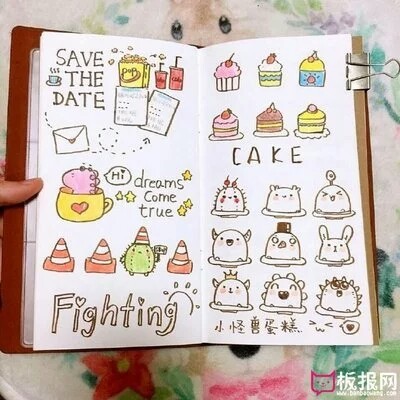 SAVE
THE
DATE
Hi
dreams
come
true
Fighting
CAKE
小怪兽蛋糕
板报网
www.banbaowang.com